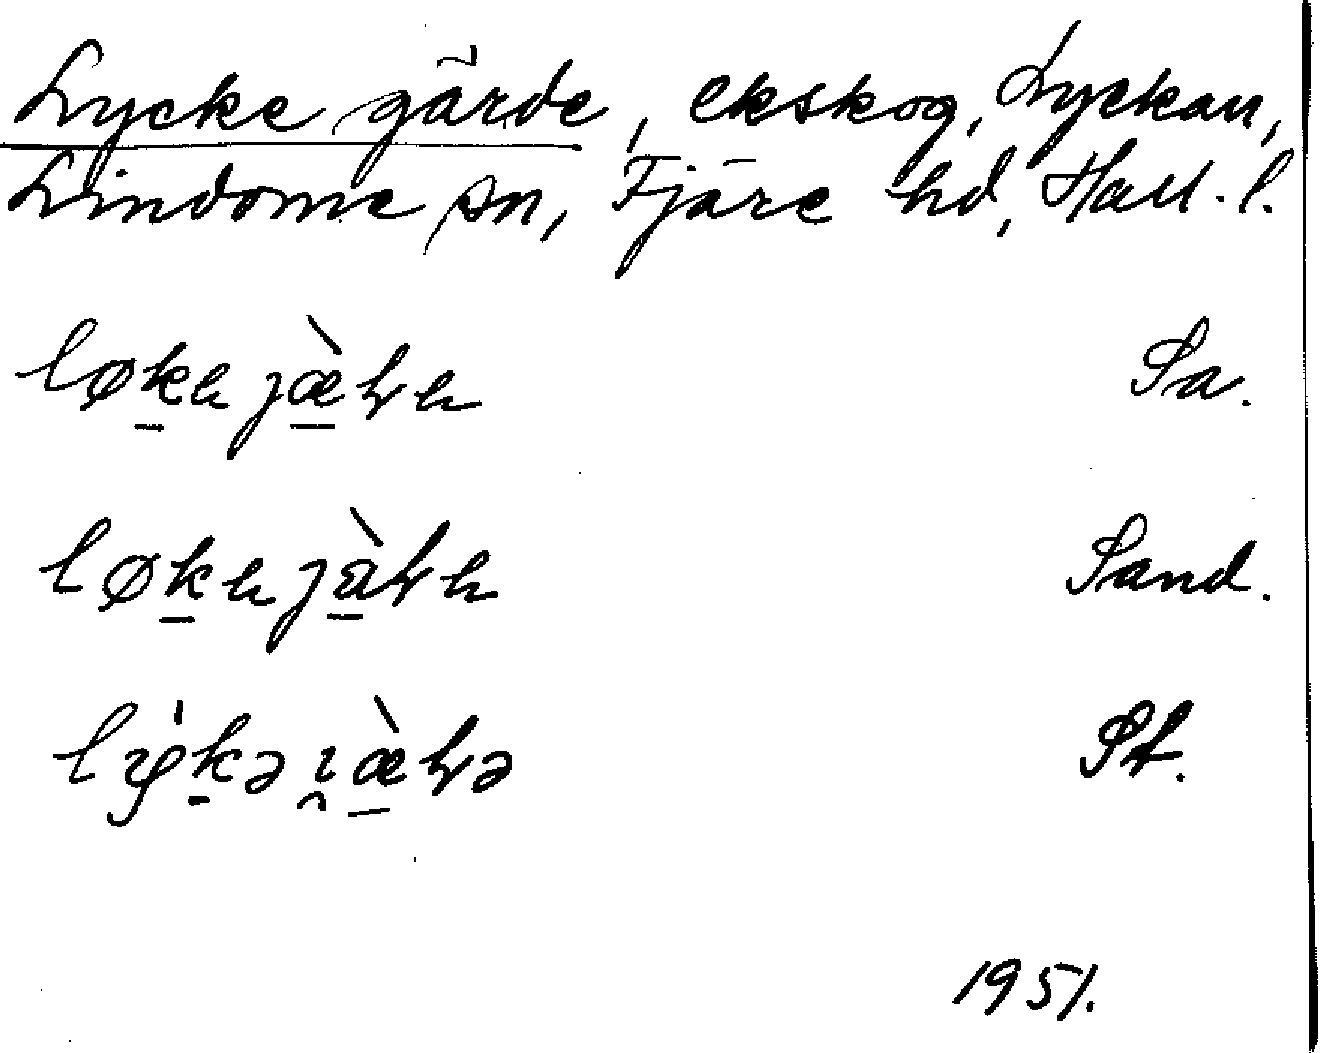 Lycke gärde, ekskog, Lyckan,
Lindome sn, Fjäre hd, Hall. l.
Sa.
Sand.
St.
1951.